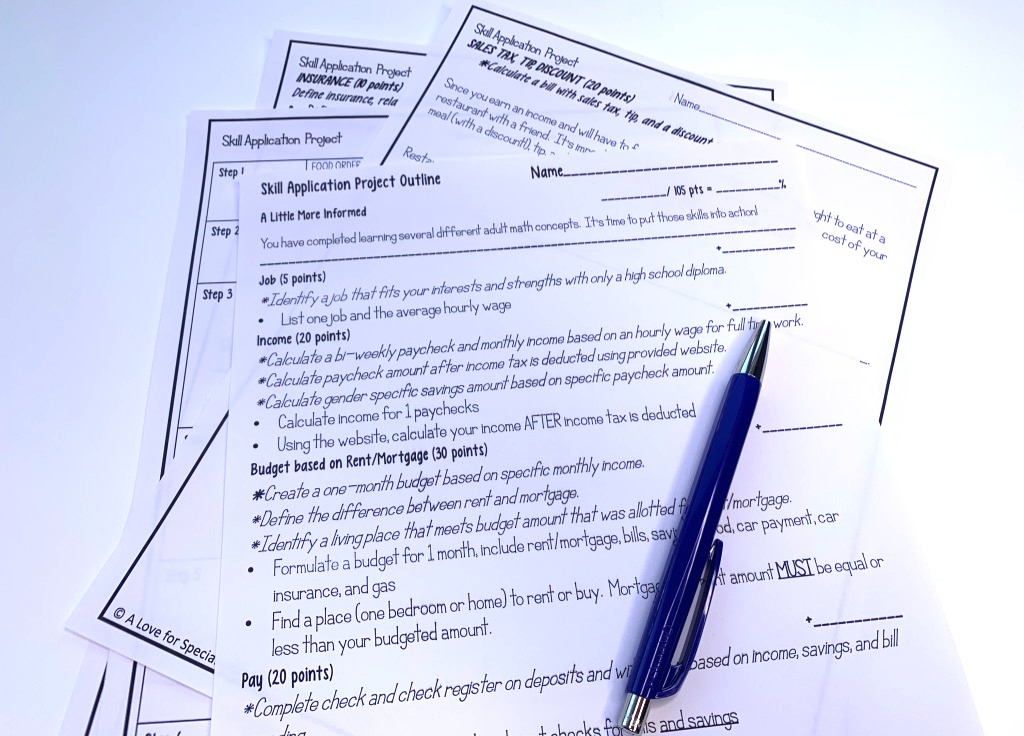 Skill Application Project
SALES TAX, TIP, DISCOUNT (20 points)
*Calculate a bill with sales tax, tip, and a discount
Name
Since you earn an income and will have to
restaurant with a friend. It's
meal (with a discount), tip,
ght to eat at a
cost of your
Skill Application Project
INSURANCE (10 points)
Define insurance, rela
Skill Application Project
Step 1
FOOD ORDER
Step 2
Step 3
Step 5
© A Love for Specia
Skill Application Project Outline
Name
/ 105 pts = %
A Little More Informed
You have completed learning several different adult math concepts. It's time to put those skills into action!
+
Job (5 points)
*Identify a job that fits your interests and strengths with only a high school diploma.
• List one job and the average hourly wage
+
Income (20 points)
*Calculate a bi-weekly paycheck and monthly income based on an hourly wage for full time work.
*Calculate paycheck amount after income tax is deducted using provided website.
*Calculate gender specific savings amount based on specific paycheck amount.
• Calculate income for 1 paychecks
• Using the website, calculate your income AFTER income tax is deducted
+
Budget based on Rent/Mortgage (30 points)
*Create a one-month budget based on specific monthly income.
*Define the difference between rent and mortgage.
*Identify a living place that meets budget amount that was allotted f /mortgage.
• Formulate a budget for 1 month, include rent/mortgage, bills, savi od, car payment, car
insurance, and gas
• Find a place (one bedroom or home) to rent or buy. Mortgag nt amount MUST be equal or
less than your budgeted amount.
+
Pay (20 points)
*Complete check and check register on deposits and wi based on income, savings, and bill
checks for bills and savings